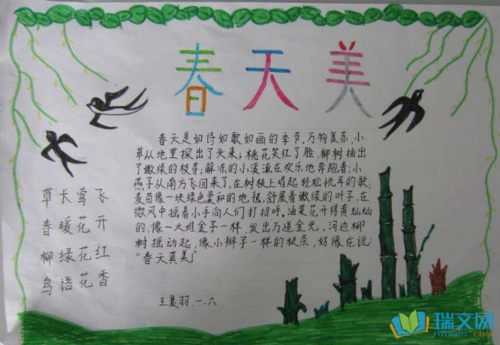 春天美
春天是如诗如歌如画的季节,万物复苏,小
草从地里探出了头来;桃花笑红了脸,柳树抽出
了嫩绿的枝芽;解冻的小溪流在欢乐地奔跑着;小
燕子从南方飞回来了,在树枝上唱起轻松欢乐的歌;
麦苗像一块绿色柔和的地毯,舒展着嫩绿的叶子,在
微风中摇着小手向人们打招呼,油菜花开得黄灿灿
的,像一大堆金子一样,发出万道金光,河边柳
树摇动起,像小辫子一样的枝条,好像在说:
“春天真美!”
草长莺飞
春暖花开
柳绿花红
鸟语花香
王晨羽 一.六
瑞文网